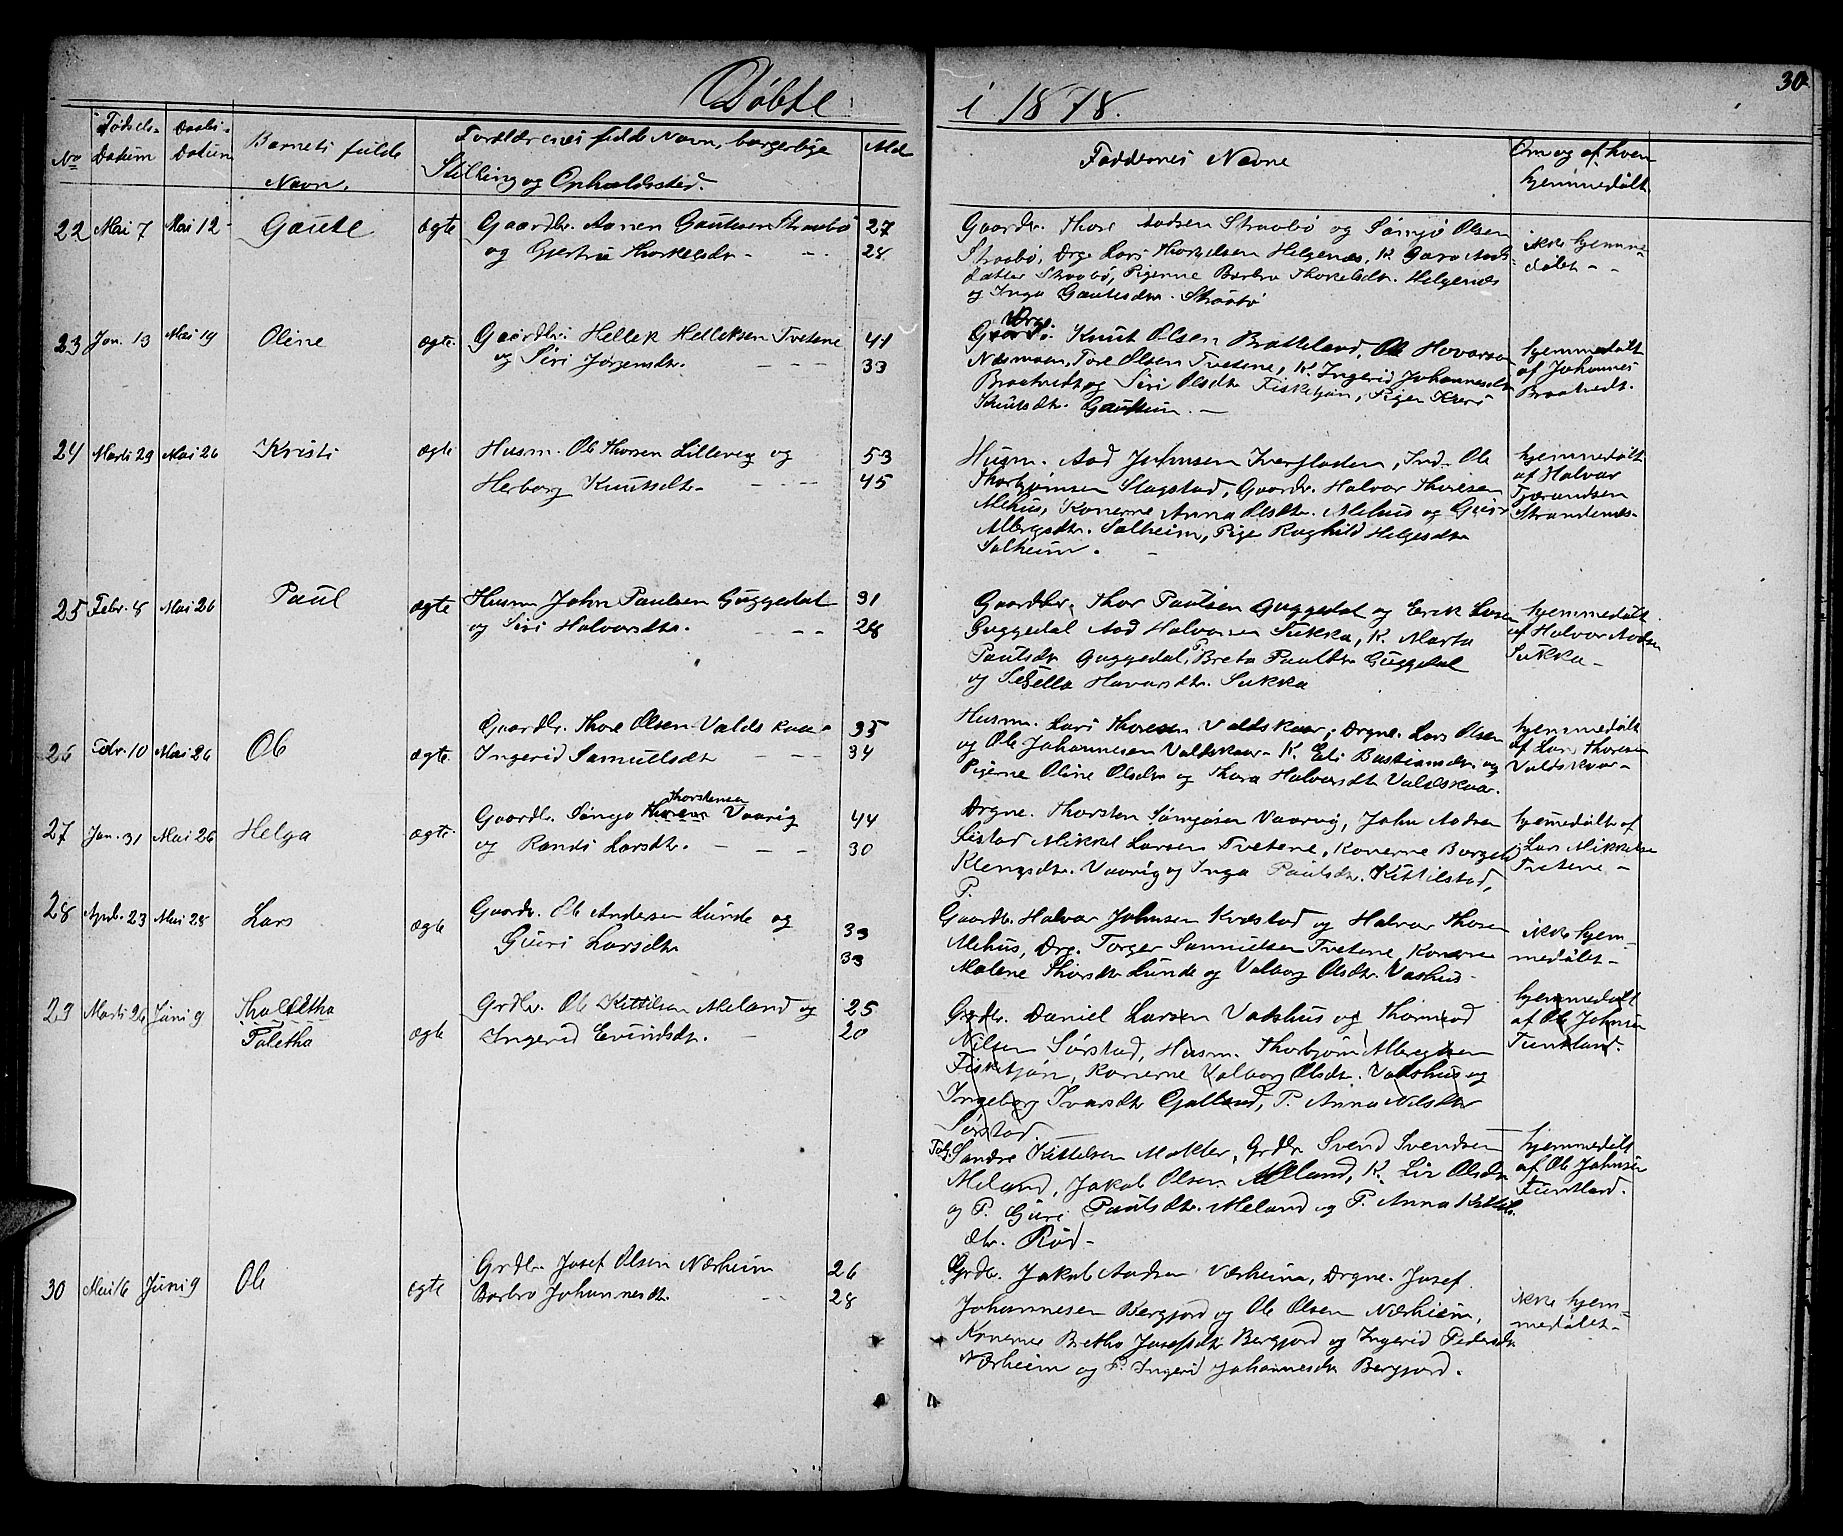 Døbte i 1878.
30
No
Fødsels-
Datum
Daabs-
Datum
Barnets fulde
Navn.
Forældrenes fulde Navn, borgerlige
Stilling og Opholdssted.
Alder
Faddernes Navne
Om og af hvem
hjemmedøbt
22 Mai 7 Mai 12 Gaute ægte
Gaardbr. Aanen Gautesen Straabø 27
og Gjertru Thorkelsdr. 28
Gaardbr. Thore Aadsen Straabø og Sømjø Olsen
Straabø, Drge Lars Thorkelsen Helgenæs, K. Guro Aads
datter Straabø, Pigerne Barbro Thorkelsdr. Helgenæs
og Inga Gautesdr. Straabø
ikke hjemme-
døbt - -
23 Jan. 13 Mai 19 Oline ægte.
Gaardbr. Hellek Helleksen Tvetene 41
og Siri Jørgensdr. 33
Drge.
Knut Olsen Bratteland, Ole Hovarsen
Næsmoen, Tore Olsen Tvetene, K. Ingerid Johannesdr.
Braatvedt og Siri Olsdr. Fisketjøn, Pigen Kari
Knutsdr. Gautun. -
hjemmedøbt
af Johannes
Braatvedt.
24 Marts 29 Mai 26 Kristi ægte
Husm. Ole Thorsen Lillevig og 53
Herborg Knutsdr. 45
Husm. Aad Johnsen Tverfladen, Ind. Ole
Thorbjørnsen Slagstad, Gaardbr. Halvor Thoresen
Mehus, Konerne Anna Olsdr. Mehus og Guri
Albregsdr. Salheim, Pige Raghild Helgesdr.
Salheim. -
hjemmedøbt
af Halvor
Tjærandsen
Strandenæs-
25 Febr. 8 Mai 26 Paul ægte
Husm John Paulsen Guggedal 31
og Siri Halvorsdr. 28
Gaardbr. Thor Paulsen Guggedal og Erik Larsen
Guggedal Aad Halvorsen Sukka, K. Marta
Paulsdr. Guggedal, P. Breta Paulsdr. Guggedal
og Sesella Havarsdr. Sukka
hjemmedøbt
af Halvor Aadsen
Sukka-
26 Febr. 10 Mai 26 Ole ægte.
Gaardbr. Thore Olsen Valdskaar 35
Ingerid Samuelsdr 34
Husm. Lars Thoresen Valdskaar, Drgne. Lars Olsen
og Ole Johannesen Valdskaar K. Eli Bastiansdr. og
Pigerne Oline Olsdr. og Thora Halvorsdr. Valdskaar.
hjemmedøbt
af Lars Thoresen
Valdskaar-
27 Jan. 31 Mai 26 Helga ægte.
Thorstensen
Gaardbr. Sømjo Vaarig 44
og Randi Larsdr. 30
Drgne. Thorsten Sømjøsen Vaarig, John Aadsen
Listad Mikkel Larsen Tvetene, Konerne Borgela
Klengsdr. Vaarig og Inga Paulsdr. Kittilstad,
P.
hjemmedøbt af
Lars Mikkelsen
Tvetene -
28 April. 23 Mai 28 Lars ægte
Gaardbr. Ole Andersen Lunde og 33
Guri Larsdr. 33
Gaardbr. Halvor Johnsen Kvæstad og Halvor Thorsen
Mehus, Drg. Torger Samuelsen Tvetene, Konerne
Malene Thorsdr. Lunde og Valborg Olsdr. Vashus-
ikke hjem-
medøbt-
29 Marts 26 Juni 9 Thalletha
Taletha ægte
Grdbr. Ole Kittilsen Meland og 25
Ingerid Evindsdr. 20
Grdbr. Daniel Larsen Vatshus og Thormod
Nilsen Sørstad, Husm. Thorbjørn Albregtsen
Fisketjøn, Konerne Valborg Olsdr. Vatshus og
Ingeborg Ivarsdr. Gjelland, P. Anna Nilsdr.
Sørstad.
hjemmedøbt
af Ole Johnsen
Funtland.
Sandre Kittelsen Makler, Grdbr Svend Svendsen
Meland, Jakob Olsen Meland, K. Liv Olsdr.
og P. Guri Paulsdr. Meland og P. Anna Kittils-
dr. Rød-
hjemmedøbt
af Ole Johnsen
Funtland.
30 Mai 6 Juni 9 Ole ægte
Grdbr. Josef Olsen Nærheim 26
Barbro Johannesdr. 28
Grdbr. Jakob Aadsen Nærheim, Drgne. Josef
Johannesen Bergjord og Ole Olsen Nærheim,
Konerne Bretha Josefsdr Bergjord og Ingerid Pedersdr
Nærheim og P. Ingerid Johannesdr Bergjord.
ikke hjem-
medøbt-